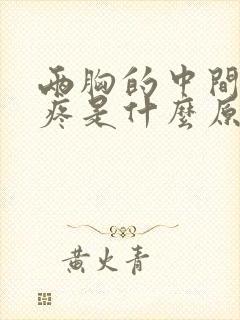 兩胸的中間
疼是什麼原
黃火青